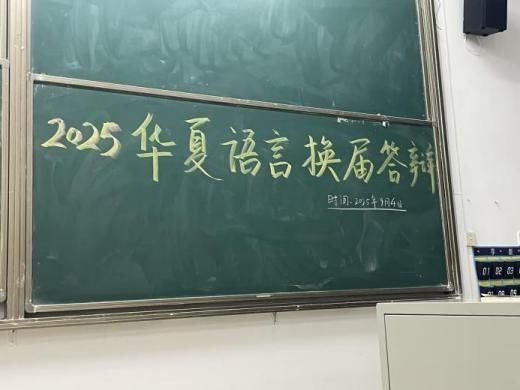 2025 华夏语言换届答辩
时间:2025年9月4日
01 02 03